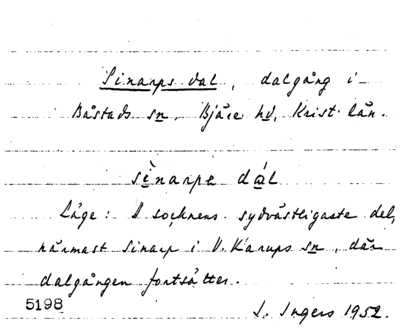 Sinarps dal, dalgång i
Båstads sn. Bjäre hd, Krist. län.
sìnarpe dál
Läge: I socknens sydvästligaste del,
närmast Sinarp i V. Karups sn, där
dalgången fortsätter.
5198
I. Ingers 1952.